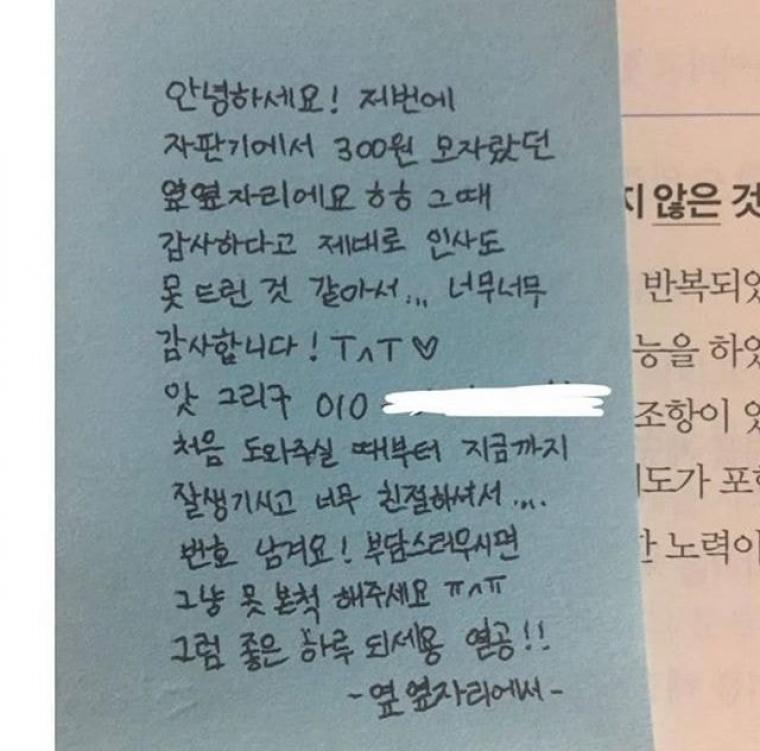 안녕하세요! 저번에
자판기에서 300원 모자랐던
옆옆자리에요 ㅎㅎ 그때
감사하다고 제대로 인사도
못 드린 것 같아서... 너무너무
감사합니다! ㅜㅅㅜ♡
앗 그리구 010
처음 도와주실 때부터 지금까지
잘생기시고 너무 친절하셔서....
번호 남겨요! 부담스러우시면
그냥 못 본척 해주세요 ㅠㅅㅠ
그럼 좋은 하루 되세용 열공!!
-옆옆자리에서-
지 않은 것
반복되었
능을 하였
조항이 있
도가 포함
한 노력이